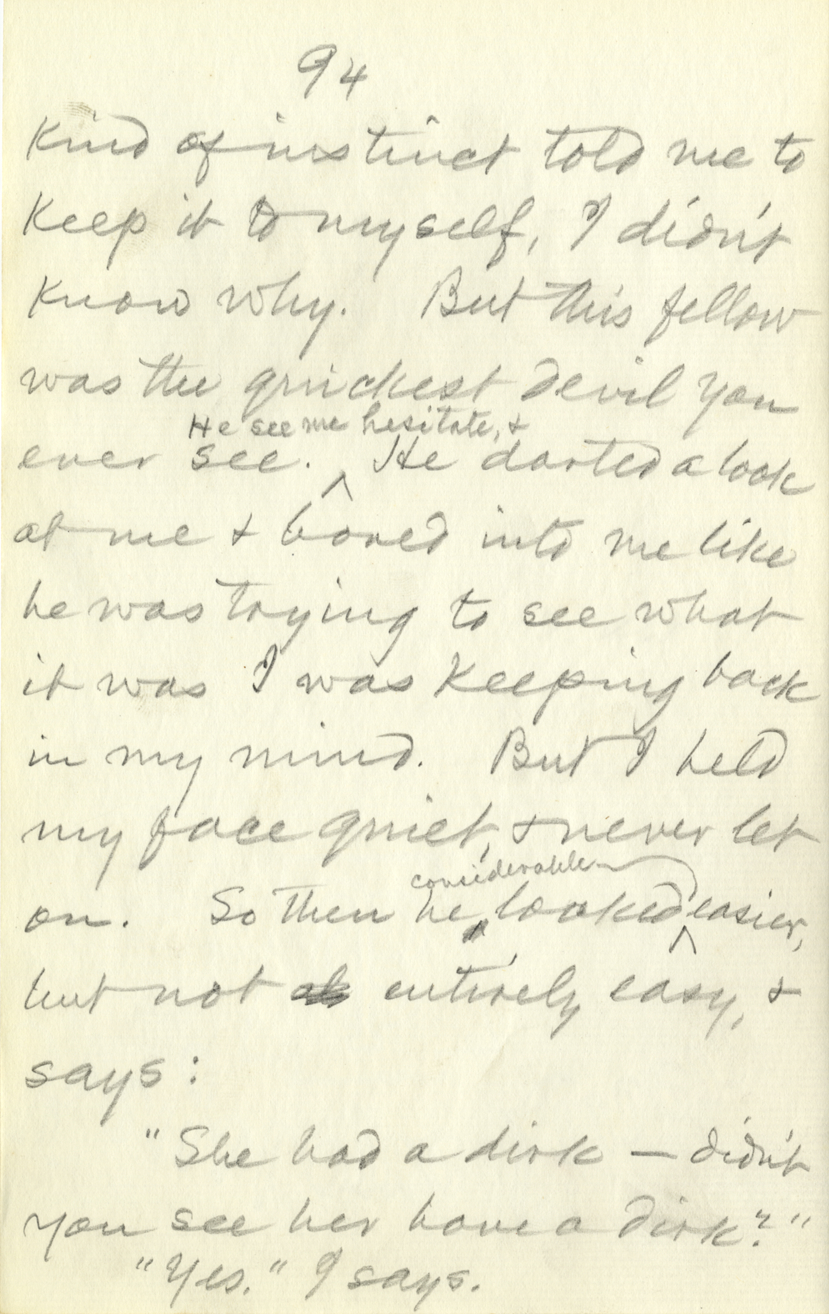 94
kind of instinct told me to
keep it to myself, I didn't
know why. But this fellow
was the quickest devil you
He see me hesitate, &
ever see. He darted a look
at me & bored into me like
he was trying to see what
it was I was keeping back
in my mind. But I held
my face quiet, & never let
considerable
on. So then he looked easier,
but not entirely easy, &
says:
"She had a dirk — didn't
you see her have a dirk?"
"Yes." I says.